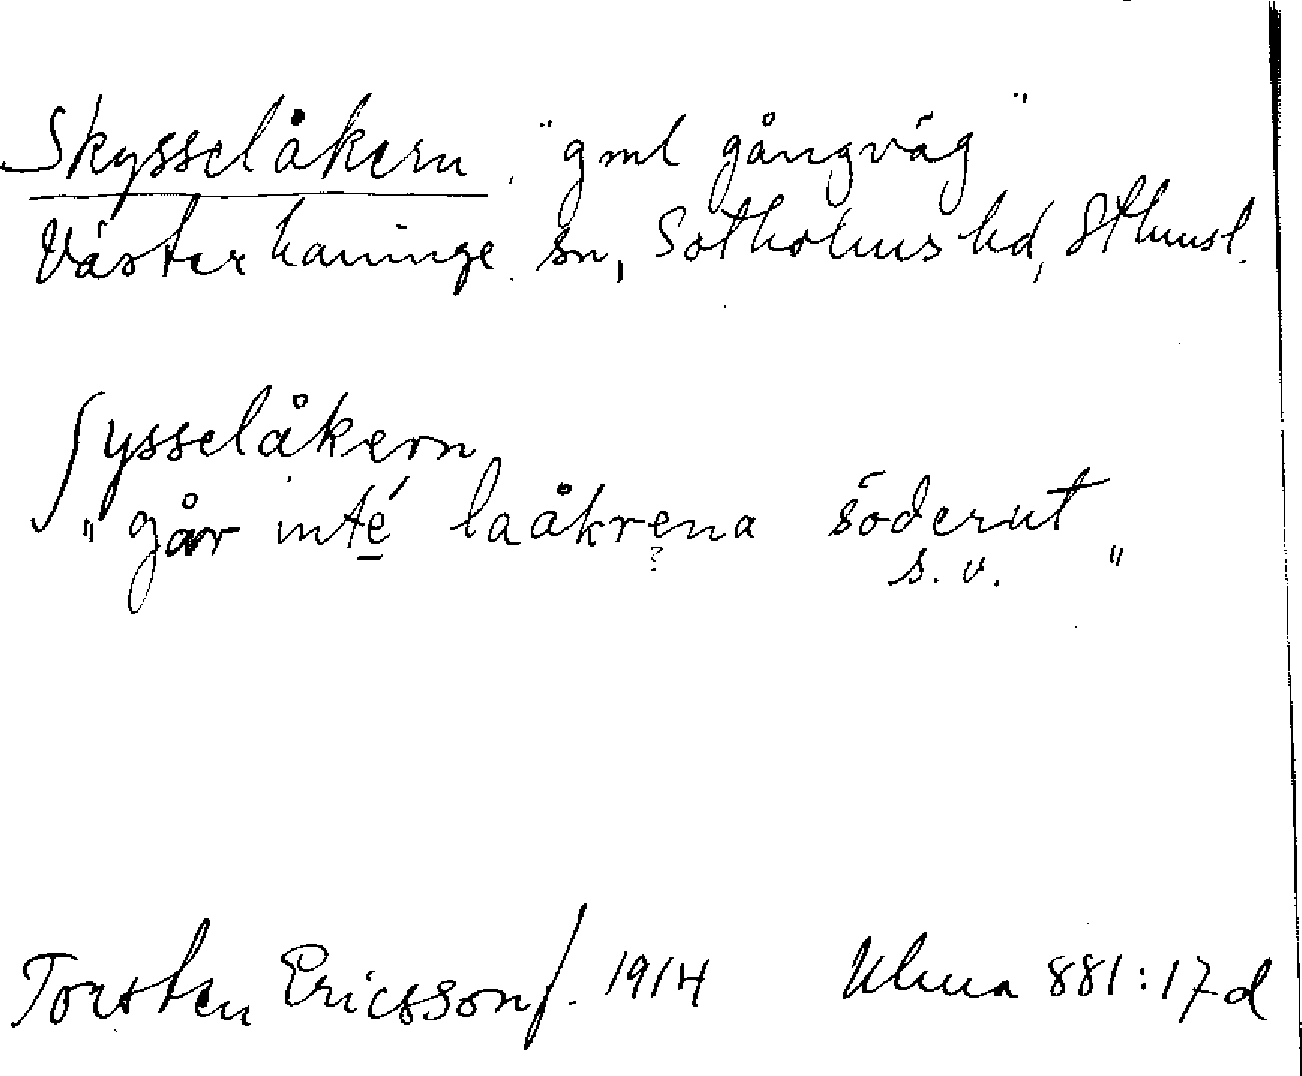 Skysselåkern. "gml gångväg"
Västerhaninge sn, Sotholms hd, Sthmsl.
ʃysselåkern
"går inté laåkrena söderut
? s. v. "
Torsten Ericsson f. 1914 Uhma 881:17d